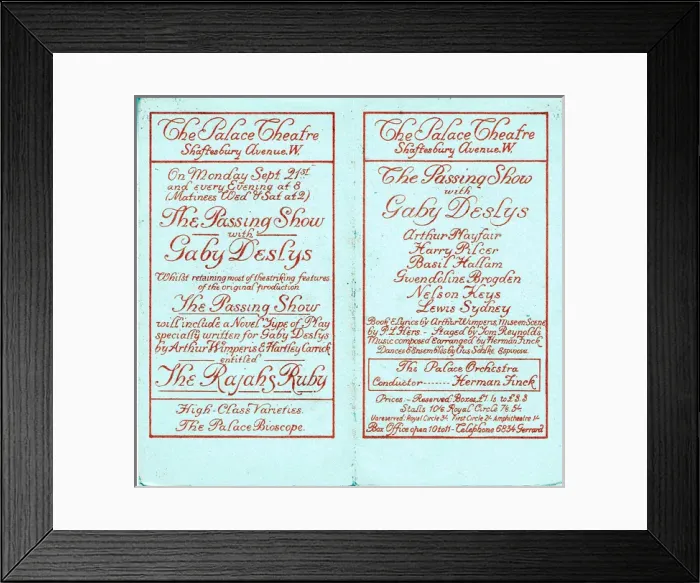 The Palace Theatre
Shaftesbury Avenue. W.
On Monday Sept 21st
and every Evening at 8
(Matinees Wed & Sat at 2)
The Passing Show
with
Gaby Deslys
Whilst retaining most of the striking features
of the original production
The Passing Show
will include a Novel Type of Play
specially written for Gaby Deslys
by Arthur Wimperis & Hartley Carrick
entitled
The Rajah's Ruby
High-Class Varieties.
The Palace Bioscope.
The Palace Theatre
Shaftesbury Avenue. W.
The Passing Show
with
Gaby Deslys
Arthur Playfair
Harry Pilcer
Basil Hallam
Gwendoline Brogden
Nelson Keys
Lewis Sydney
Book & Lyrics by Arthur Wimperis, Mise en Scene
by P.L. Flers - Staged by Tom Reynolds
Music composed & arranged by Herman Finck
Dances & Ensembles by Gus Sohlke, Espinosa.
The Palace Orchestra
Conductor ------- Herman Finck
Prices - Reserved Boxes £1.1s to £3.3
Stalls 10/6 Royal Circle 7/6. 5/-
Unreserved: Royal Circle 3/- First Circle 2/- Amphitheatre 1/-
Box Office open 10 to 11 - Telephone 6834 Gerrard